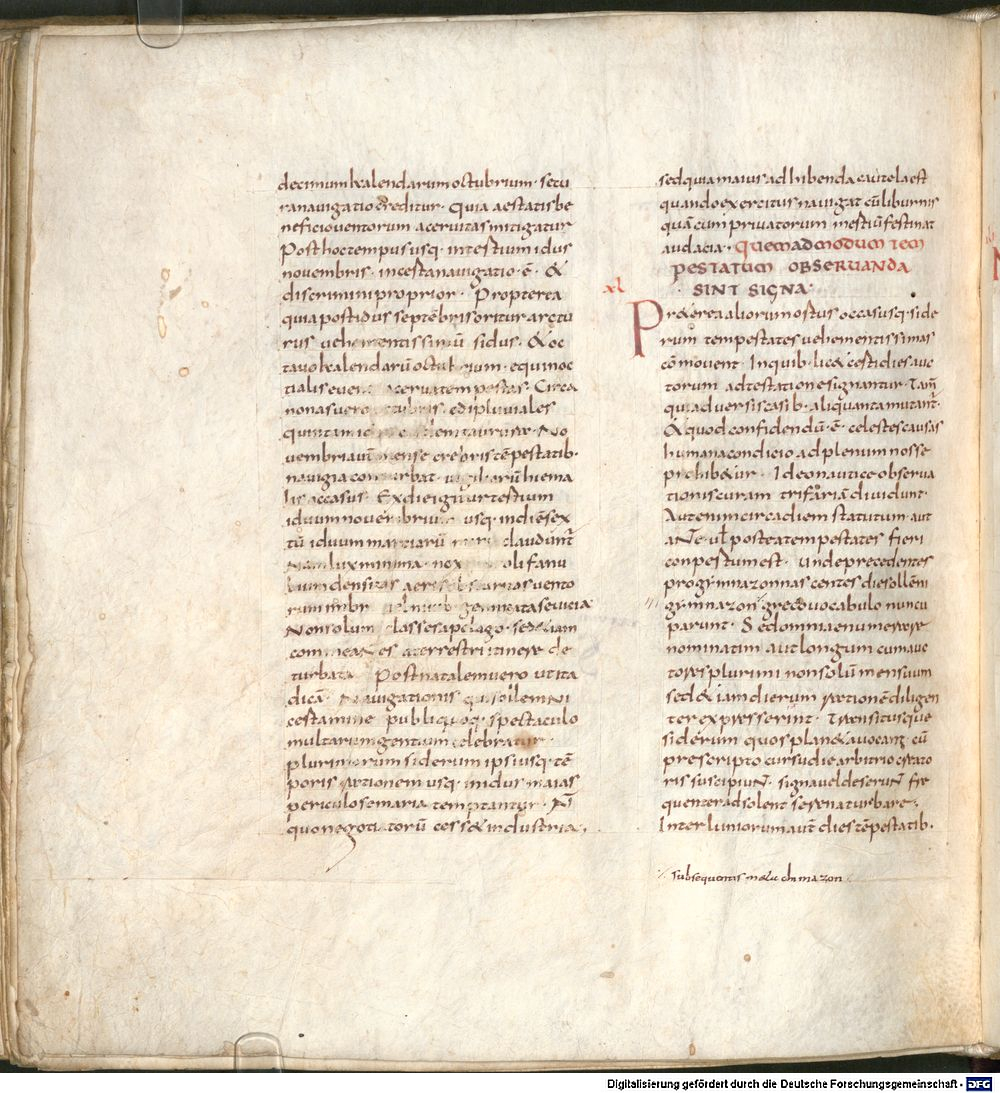 decimum kalendarum octubrium · secu
ra navigatio creditur · Quia aestatis be
neficio ventorum acervitas mitigatur
Post hoc tempus usq· in tertium idus
novembris · incerta navigatio ē · &
discrimini proprior · Propterea
quia post idus septēbris oritur arctu
rus vehementissimū sidus · & oc
tavo kalendarū octubrium · equinoc
tialis evenit acerva tempestas · Circa
nonas vero octubris edi pluviales
quintum id eisdem taurus · No
vembri autē mense crebris tēpestatib·
navigia conturbat vigiliarū hiema
lis occasus · Ex die igitur tertium
iduum novembrium usq· in diē sex
tū iduum marciarū maria claudunt̄
Nam lux minima · nox prolixa nu
bium densitas aeris obscuritas vento
rum imbr vel nivib· geminata sevicia
Non solum classes a pelago · sed etiam
commeantes a terrestri itinere de
turbat · Post natalem vero ut ita
dicā · Navigationis qui sollemni
certamine publicoq· spectaculo
multarum gentium celebratur ·
plurimorum siderum ipsiusq· tē
poris rationem usq· in idus maias
periculose maria temptantur · N̄
quo negotiatorū cess& industria ·
sed quia maiur adhibenda cautela est
quando exercitus navigat cū liburnis
quā cum privatorum mestiū festinat
audacia · quemadmodum tem
pestatum observanda
sint signa ·
xl
Pr&erea aliorum ostus occasusq· side
rum tempestates vehementissimas
cōmovent · In quib· lic& certi dies auc
torum adtestatione signantur · Tam̄
quia diversis casib· aliquanta mutant̄ ·
& quod confidendū ē · celestes causas
humana condicio ad plenum nosse
prohib&ur · Ideo nautice observa
tionis curam trifariā dividunt ·
Aut enim circa diem statutum · aut
ante · ul postea tempestates fieri
conpertum est · unde precedentes
progymnazon nascentes die sollēni
gymnazon greco vocabulo nuncu
parunt · Sed omnia enumerare
nominatim aut longum cum auc
tores plurimi non solū mensuum
sed & iam dierum rationē diligen
ter expresserint · Transitus que
siderum quos plan&a vocant · cū
prescripto cursu die arbitrio creato
ris suscipiunt · signa vel deserunt fre
quenter adsolent serena turbare ·
Inter luniorum aut̄ dies tēpestatib·
subsequentis m&u chimazon
Digitalisierung gefördert durch die Deutsche Forschungsgemeinschaft · DFG